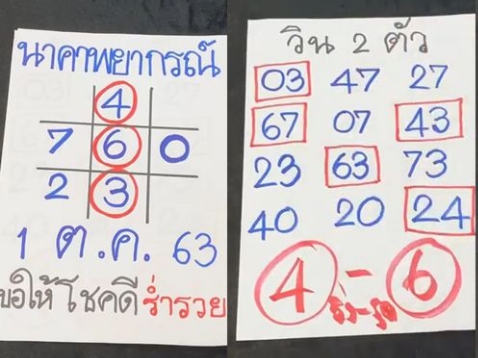 นาคาพยากรณ์
4
7 6 0
2 3
1 ต.ค. 63
ขอให้โชคดี ร่ำรวย
วิน 2 ตัว
03 47 27
67 07 43
23 63 73
40 20 24
4 - 6